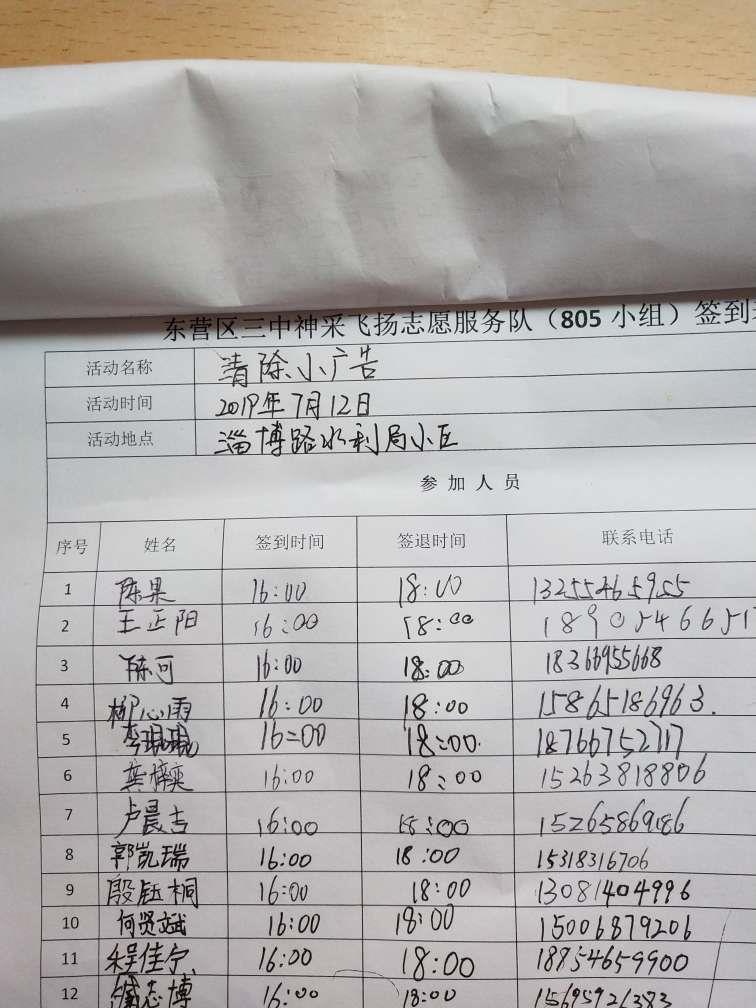 东营区三中神采飞扬志愿服务队（805 小组）签到
活动名称 清除小广告
活动时间 2019年7月12日
活动地点 淄博路水利局小区
参加人员
序号 姓名 签到时间 签退时间 联系电话
1 陈果 16:00 18:00 13255465955
2 王正阳 16:00 18:00 1890546651
3 陈可 16:00 18:00 18366955668
4 柳心雨 16:00 18:00 15865186963.
5 李琨琨 16:00 18:00. 18766752717
6 龚梓奕 16:00 18:00 15263818806
7 卢晨吉 16:00 18:00 15265869186
8 郭凯瑞 16:00 18:00 15318316706
9 殷钰桐 16:00 18:00 13081404996
10 何贤斌 16:00 18:00 15006879206
11 程佳宁 16:00 18:00 18854659900
12 志博 16:00 18:00